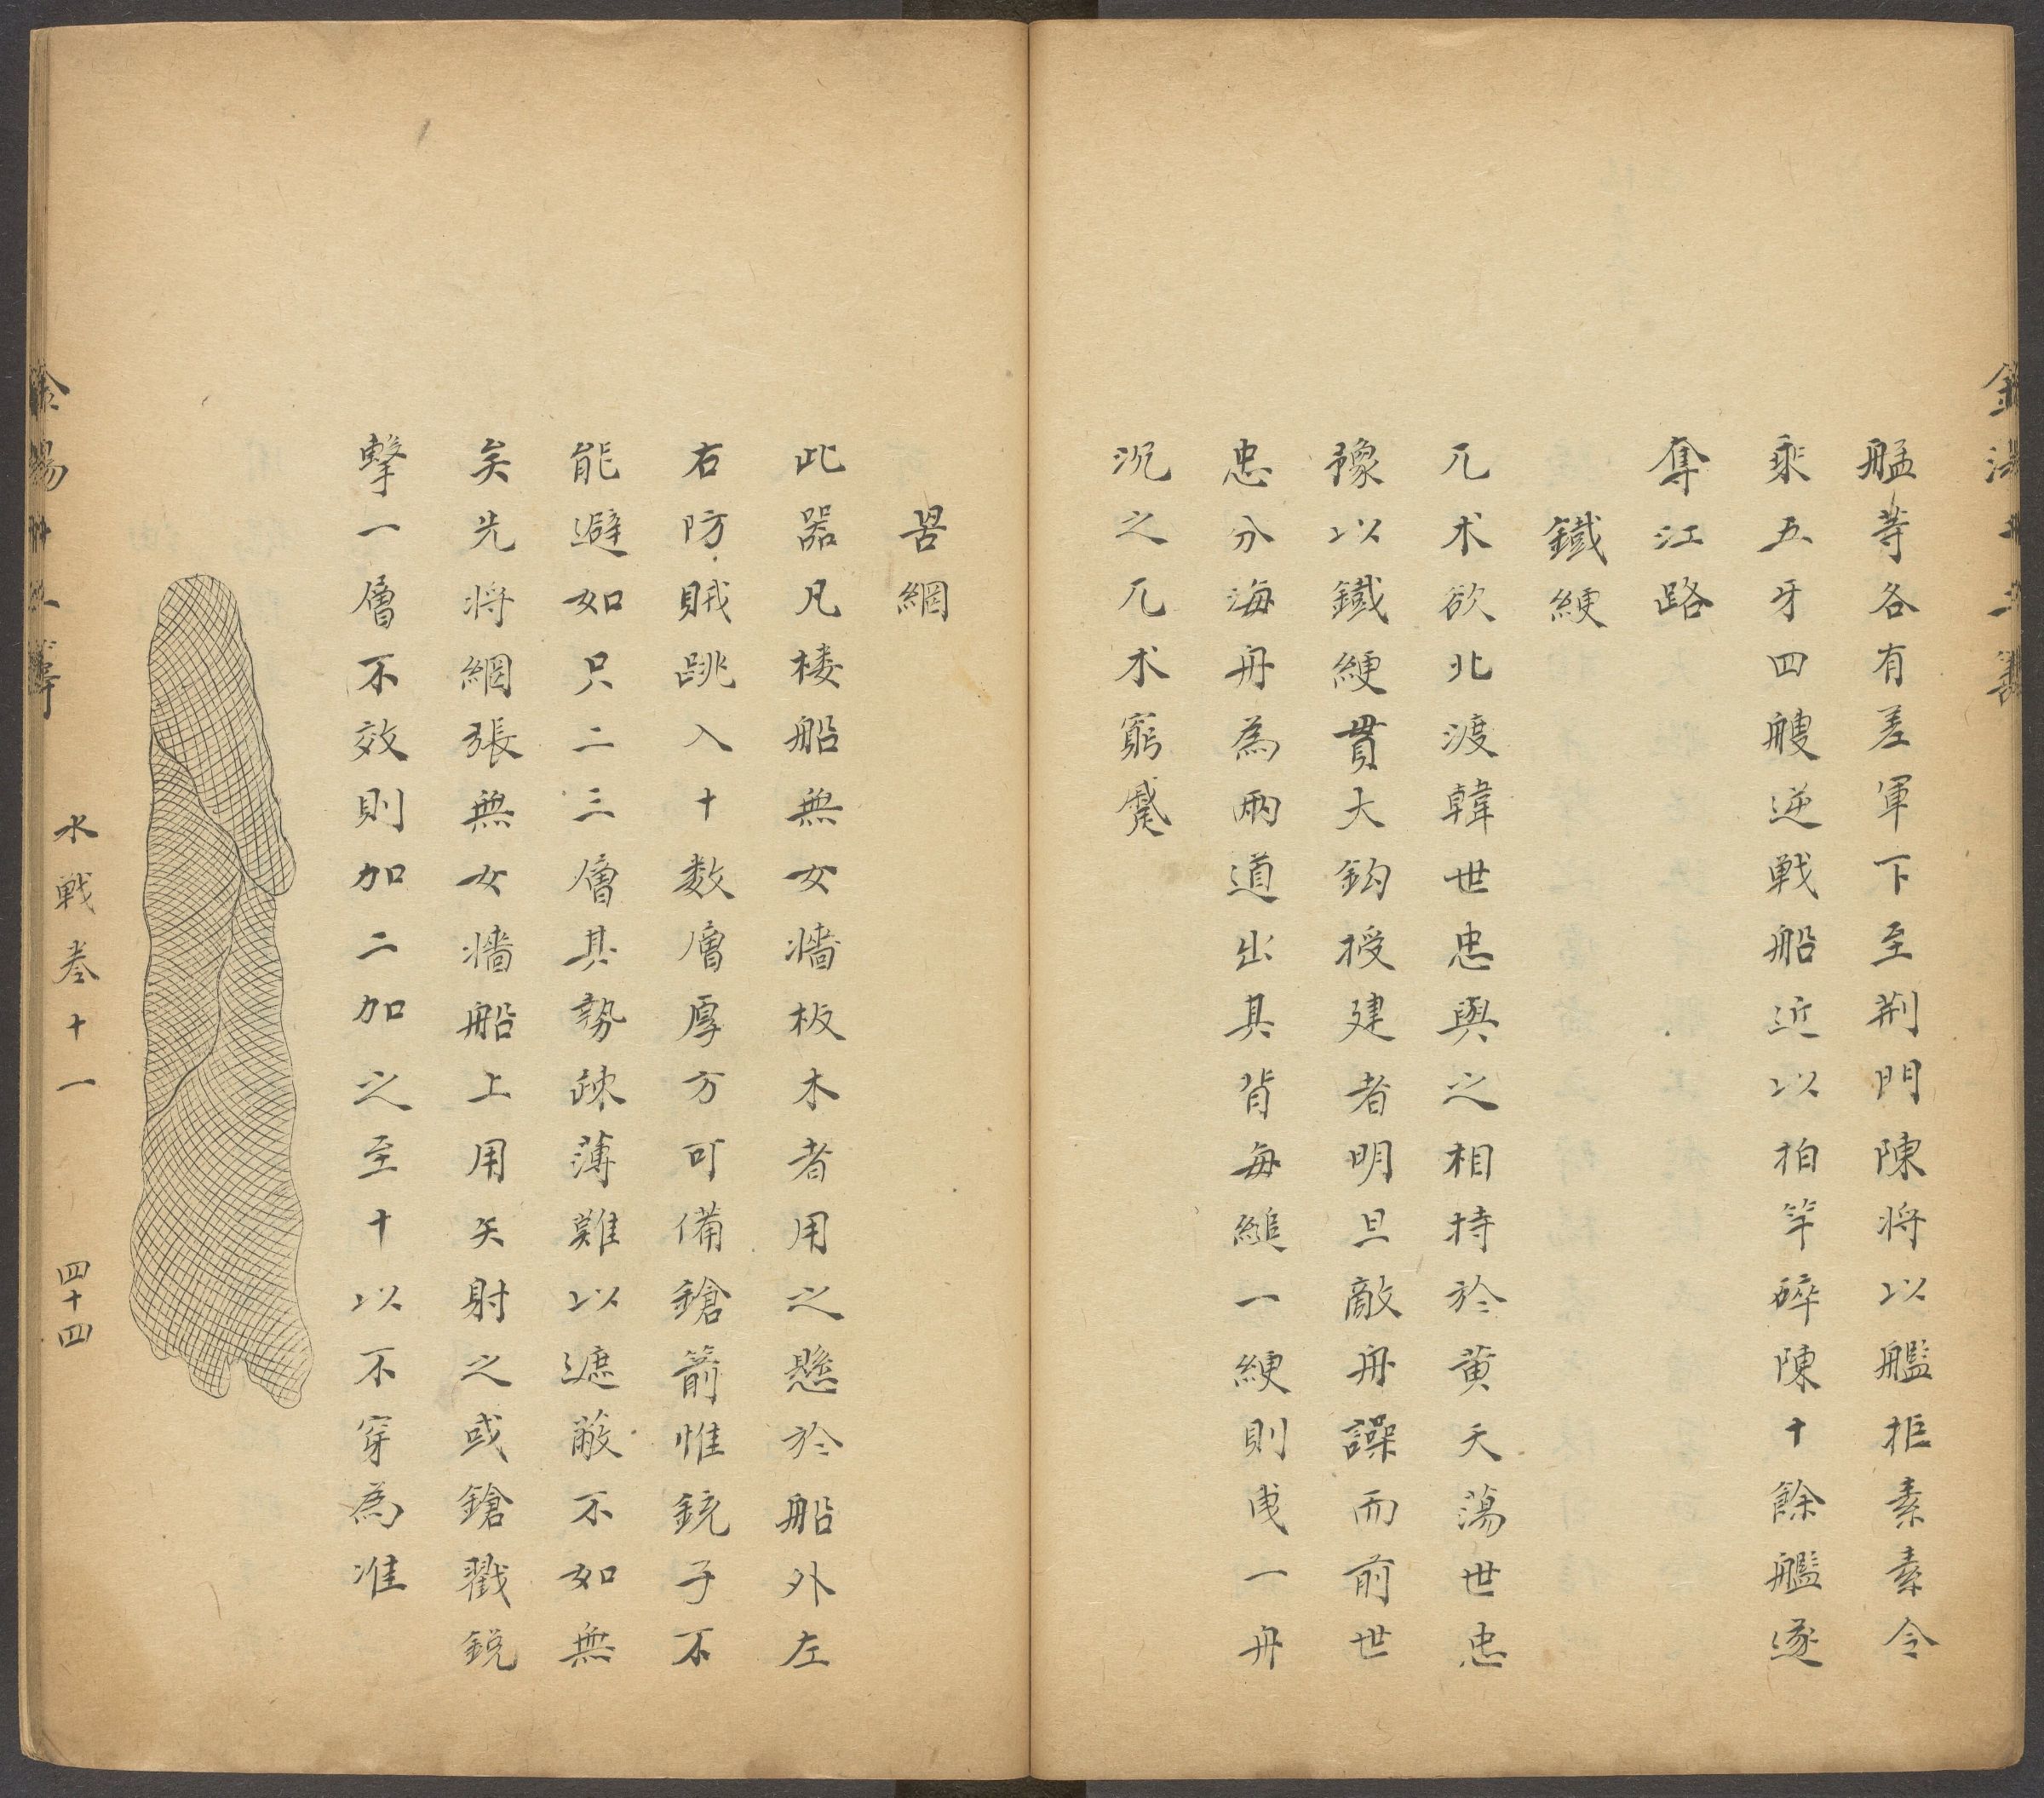 艋等各有差軍下至荆門陳将以艦拒素素令
乘五牙四艘逆戦船近以柏竿碎陳十餘艦遂
奪江路
鐡綆
兀术欲北渡韓世忠與之相持於黄天蕩世忠
豫以鐡綆貫大鈎授建者明旦敵舟譟而前世
忠分海舟為兩道出其背每縋一綆則曵一舟
沉之兀术窮蹙
罟網
此器凡楼船無女墻板木者用之懸於船外左
右防賊跳入十数層厚方可備鎗箭惟銃子不
能避如只二三層其勢疎薄難以遮蔽不如無
矣先将網張無女墻船上用矢射之或鎗戳銳
擊一層不效則加二加之至十以不穿為准
水戦巻十一
四十四